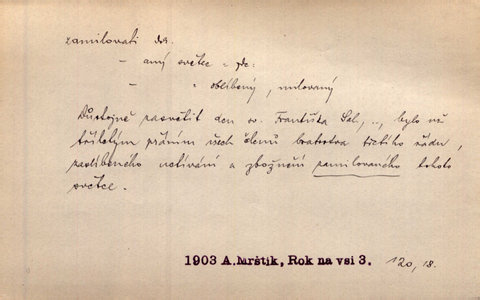 zamilovati dok.
– aný světec = fr.:
– " oblíbený, milovaný
Důstojně zasvětit den sv. Františka Sal, .., bylo ne
toliko přáním všech členů bratrstva třetího řádu,
zaslíbeného uctívání a zbožnění zamilovaného tohoto
světce.
1903 A. Mrštík, Rok na vsi 3. 120, 18.